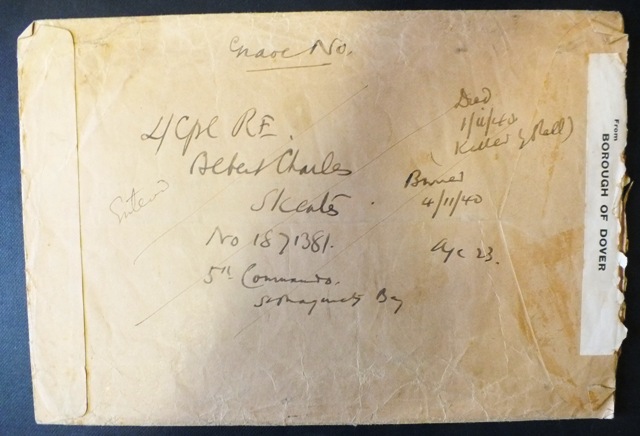 Grave No.
L/Cpl R.E.
Albert Charles
Skeats
No 1871381.
5th Commando.
St Margarets Bay
Entered
Died
1/11/40
(Killed by Shell)
Buried
4/11/40
Age 23.
From
BOROUGH OF DOVER